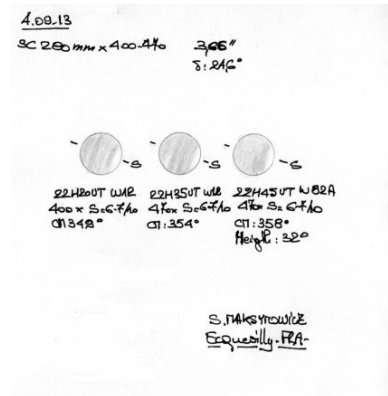 4.09.13
SC 280mm x 400-470 3,66"
-S -S -S
22H20UT W12 22H35UT W12 22H45UT W82A
400x S=6-7/10 470x S=6-7/10 470x S=6-7/10
CM 348° CM:354° CM:358°
Height: 32°
S.MAKSYMOWICZ
Ecquevilly-FRA-